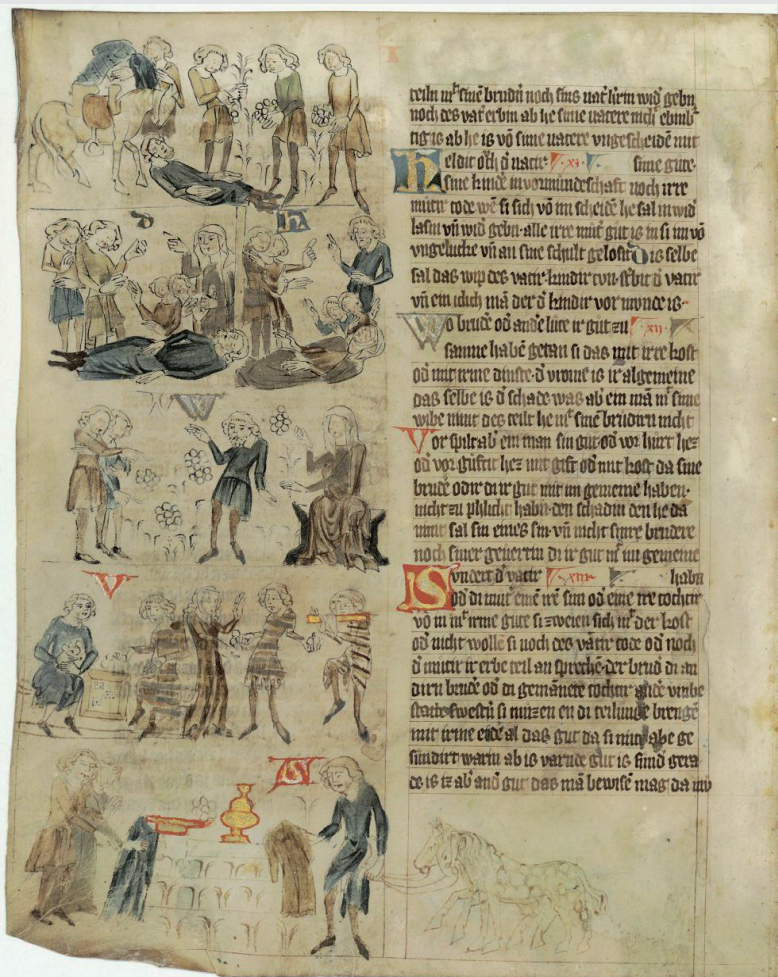 teiln mit sinē brudn̄ noch sins vat͛ hirin wid͛ gebn
noch des vat͛ erbin ab he sime vatere nich ebinb͛
tig is ab he is vō sime vatere vngescheidē mit
Heldit och d͛ vat͛ · xi · sime gute
sine kindē in vormūdeschaft noch irre
mut͛ tode wē si sich vō im scheidē he sal in wid͛
lasin vn̄ wid͛ gebn alle irre mut͛ gut is in si im vō
vngelucke vn̄ an sine schult gelosit Dis selbe
sal das wip des vat͛ kindir tun stēbit d͛ vat͛
vn̄ ein iclich mā der d͛ kindir vormonde is
Wo brud͛e od͛ andē lute ir gut zu · xii ·
samne habē getan si das mit irre kost
od͛ mit irme dinste d͛ vrome is ir algemeine
das selbe is d͛ schade was ab͛ ein mā mit sime
wibe nimt des teilt he mit sinē brudirn nicht
Vor spilt ab͛ ein man sin gut od͛ vor hurt hez
od͛ vor guftit hez mit gift od͛ mit kost da sine
brud͛e odir di ir gut mit im gemeine haben
nicht zu phlicht habn den schadin den he da
nimt sal sin eines sin vn̄ nicht sinre brudere
noch siner geuertin di ir gut mit im gemeine
Sundert d͛ vat͛ · xiii · habn
od͛ di mut͛ einē irē sun od͛ eine irre tochtir
vō in mit irme gute si zweien sich mit der kost
od͛ nicht wolle si noch des vat͛ tode od͛ noch
d͛ mutir ir erbe teil an sprechē der brud͛ di an
dirn brud͛e od͛ di gemānete tochtir andē vmbe
statte swestn̄ si muzen en di teilunge brengē
mit irme eide al das gut da si mit abe ge
sundirt warin ab is varnde gut is sind gera
de is iz ab͛ and͛ gut das mā bewisē mag da mv
D
H
W
V
S